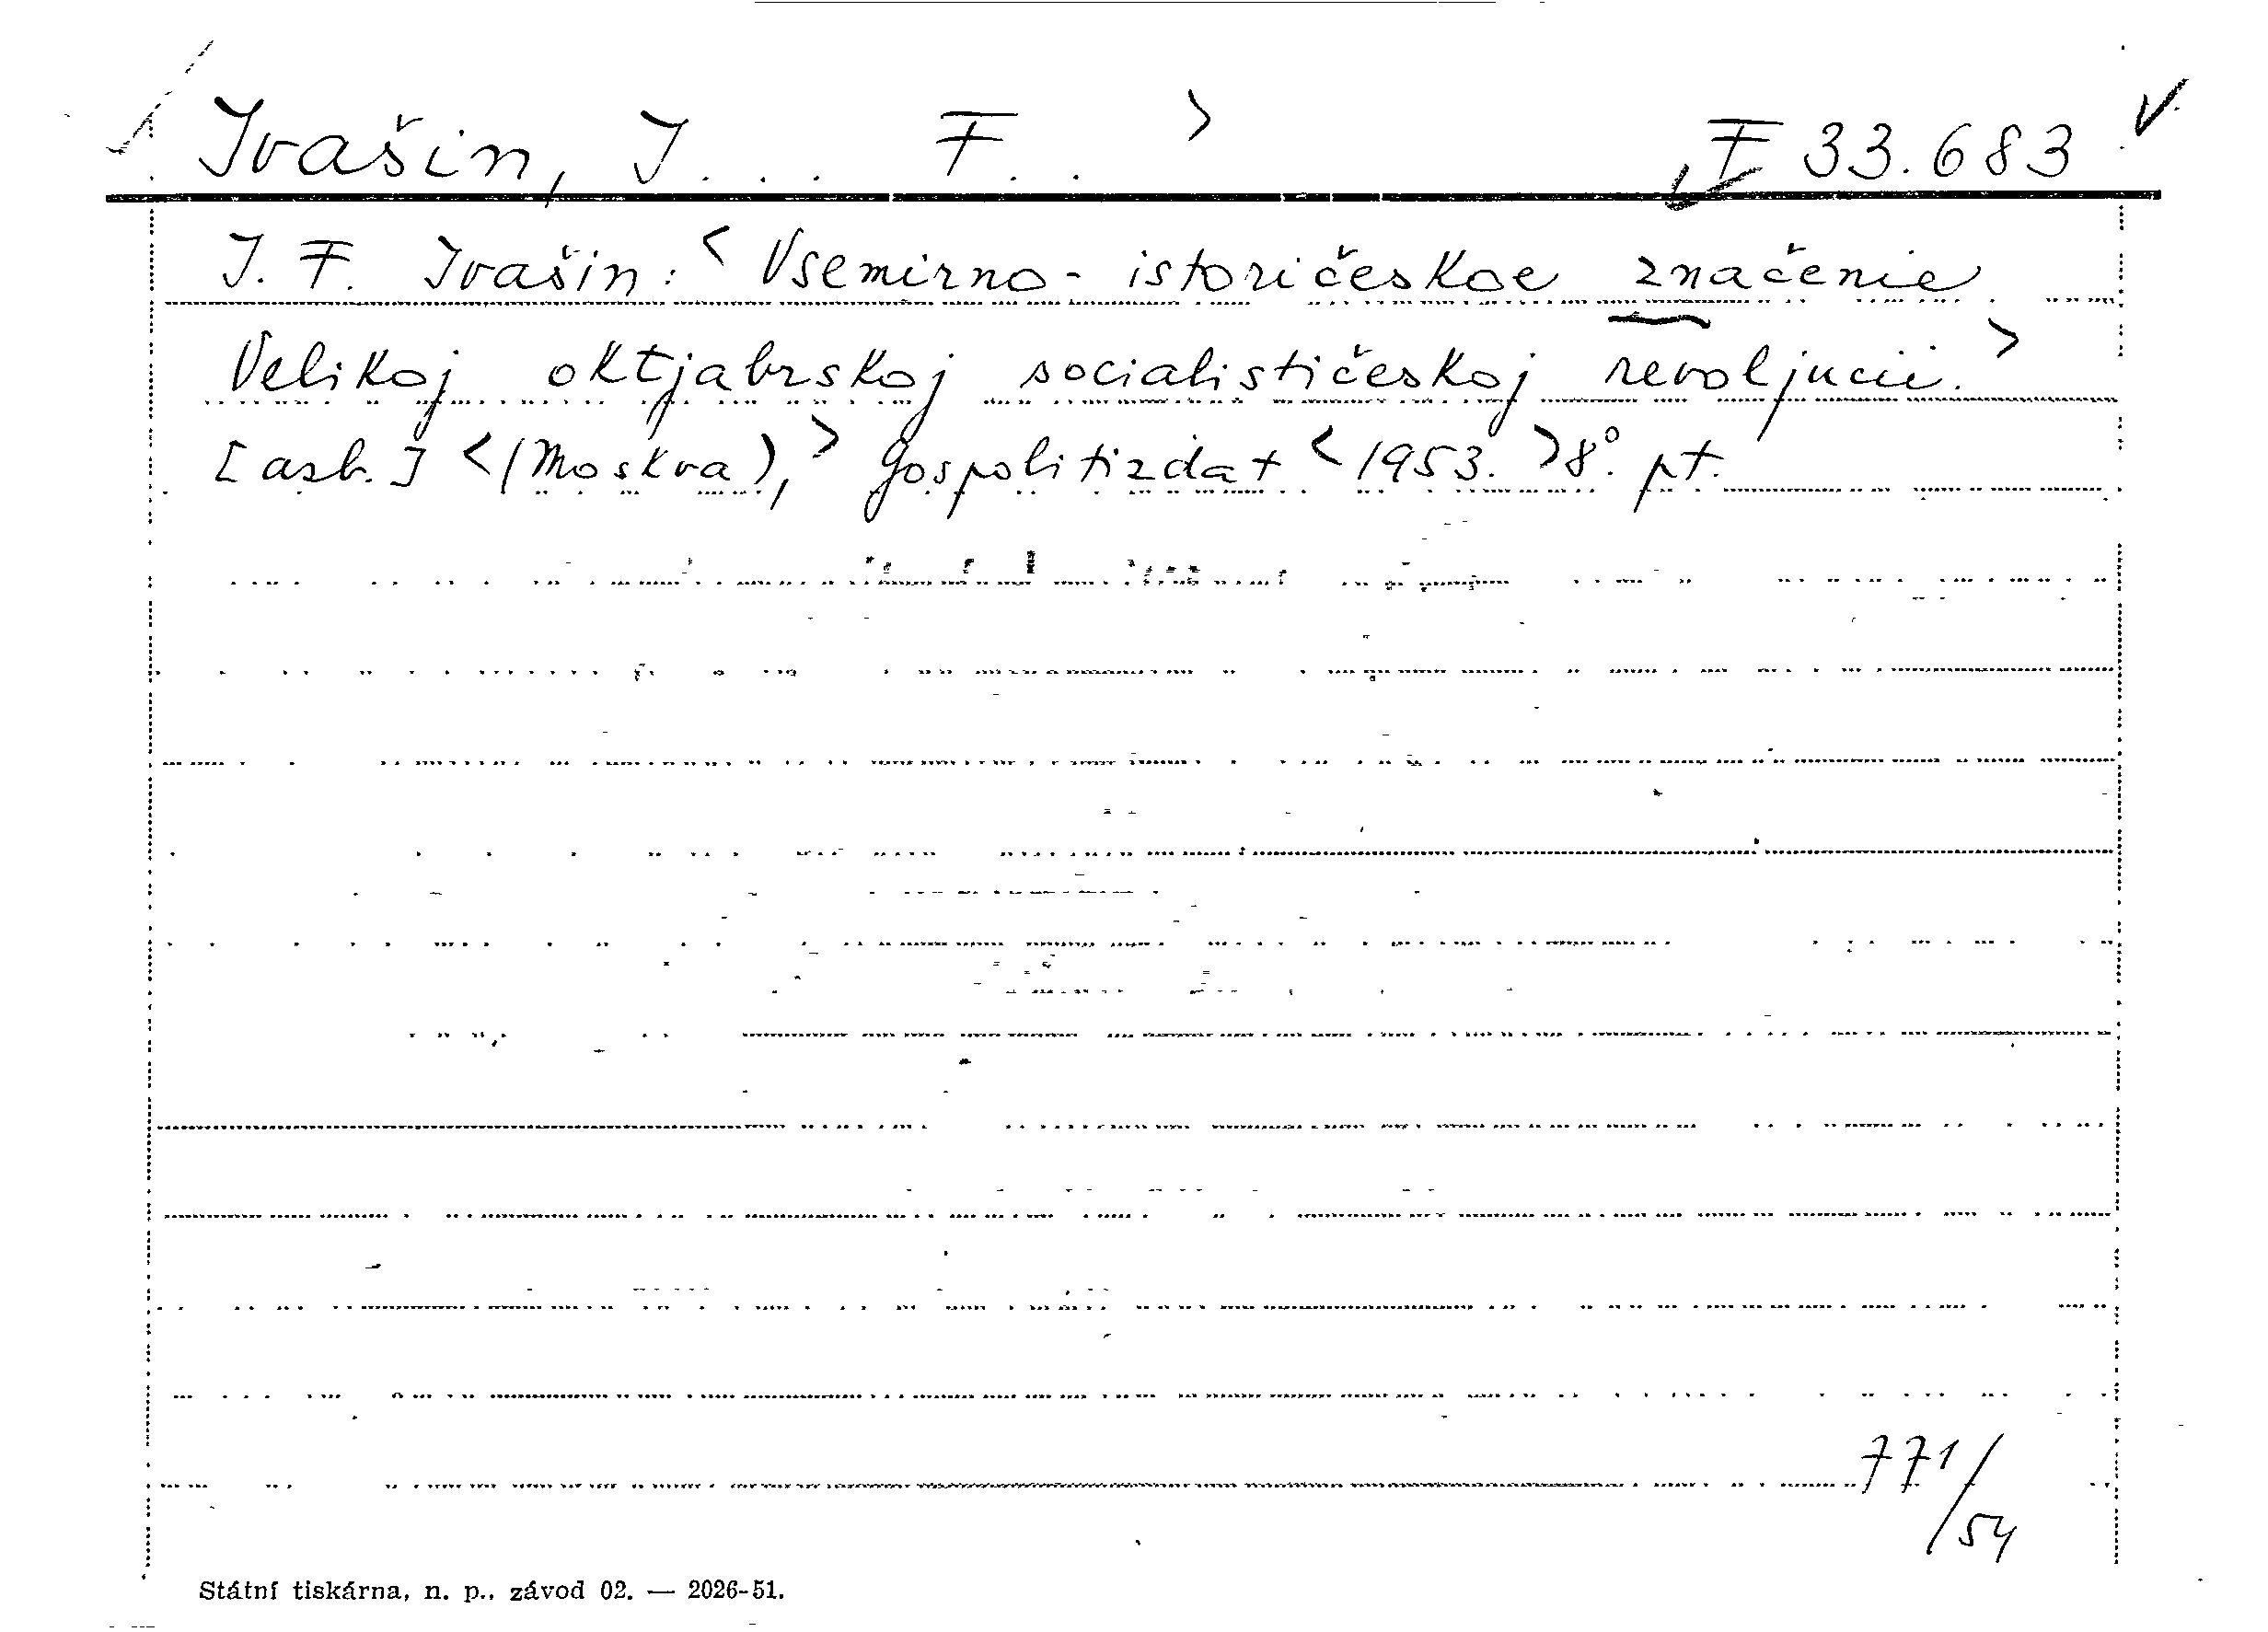 Ivašin, I... F.. > F 33.683
I. F. Ivašin: < Vsemirno-istoričeskoe značenie
Velikoj oktjabrskoj socialističeskoj revoljucii. >
[azb.] < (Moskva), > Gospolitizdat < 1953. > 8°. pt.
771/54
Státní tiskárna, n. p., závod 02. — 2026-51.